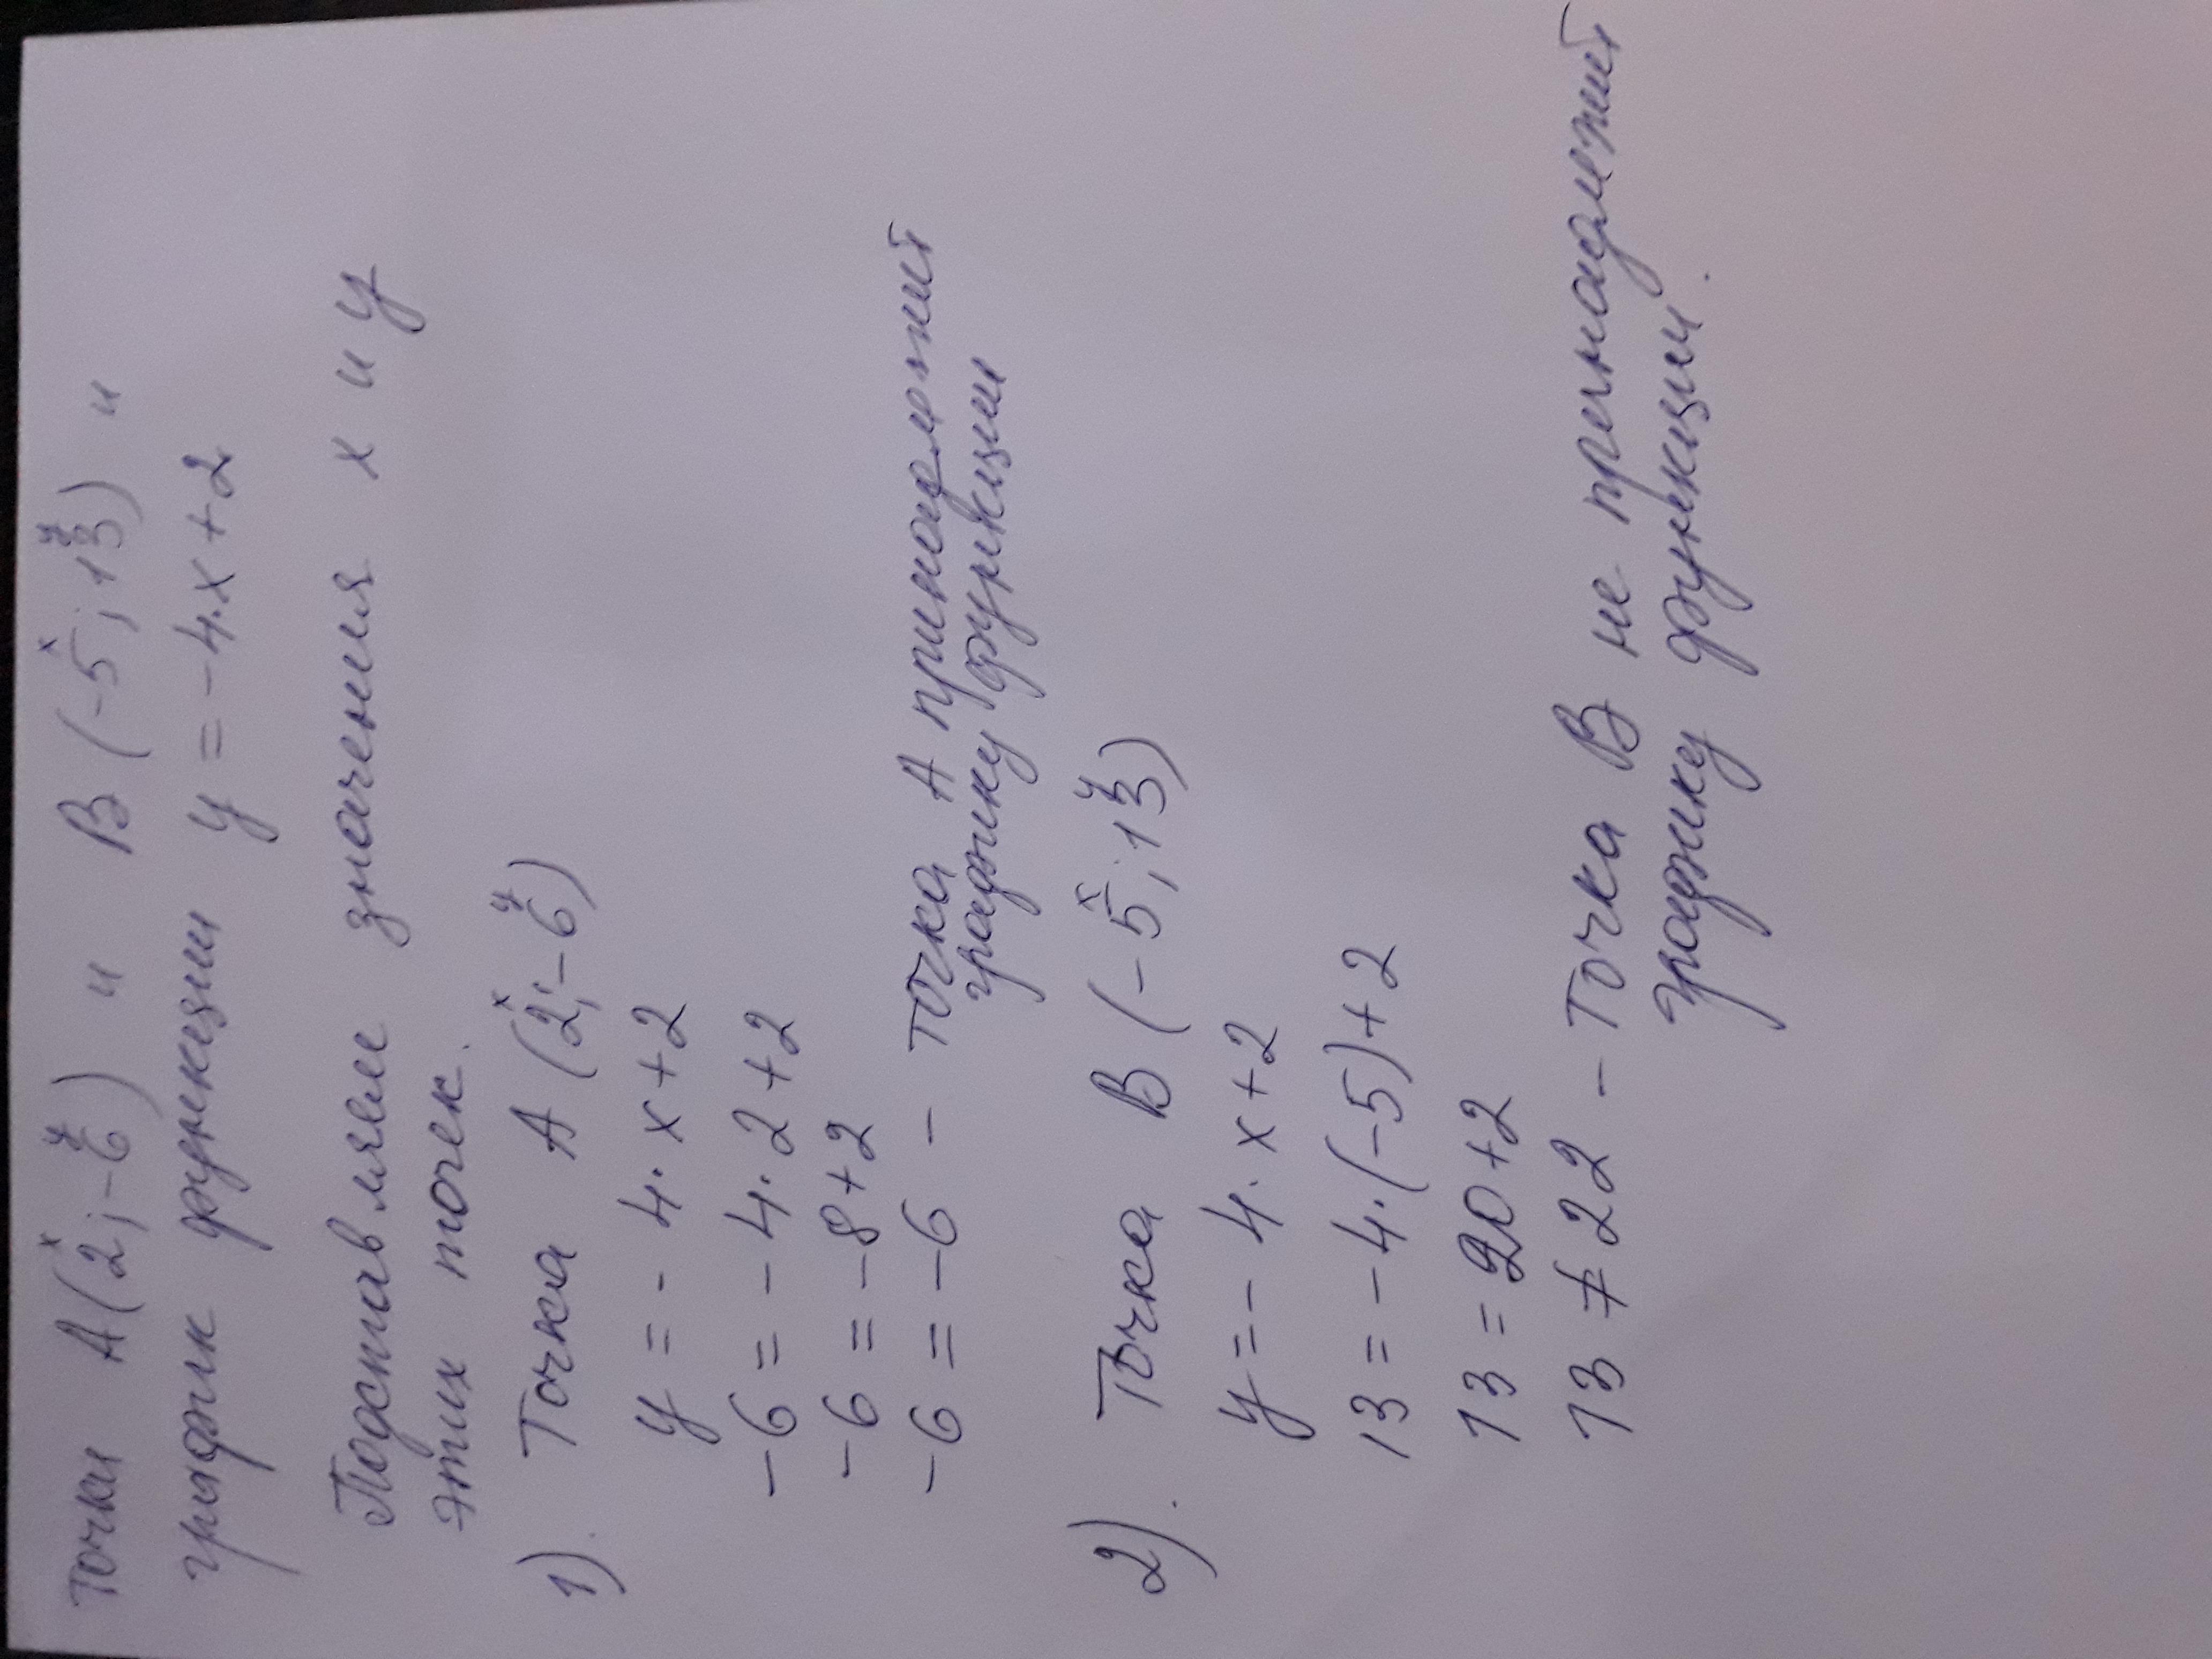 точки A(2; -6) и B(-5; 13) и
x y x y
график функции y = -4·x+2
Подставляем значения x и y
этих точек.
1). Точка A(2; -6)
x y
y = -4·x+2
-6 = -4·2+2
-6 = -8+2
-6 = -6 - точка A принадлежит
графику функции
2). Точка B(-5; 13)
x y
y = -4·x+2
13 = -4·(-5)+2
13 = 20+2
13 ≠ 22 - Точка B не принадлежит
графику функции.